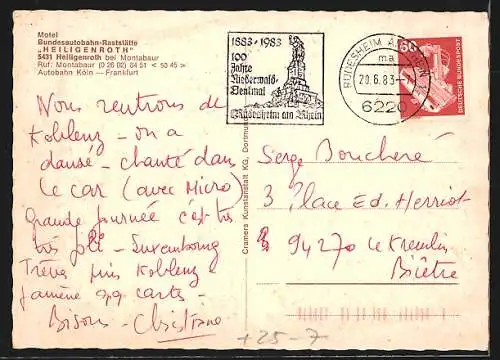 Motel
Bundesautobahn-Raststätte
„HEILIGENROTH"
5431 Heiligenroth bei Montabaur
Ruf: Montabaur (0 26 02) 04 51 < 50 45 >
Autobahn Köln — Frankfurt
1883-1983
100
Jahre
Niederwald-
Denkmal
Rüdesheim am Rhein
RÜDESHEIM AM RHEIN 1
ma
20.6.83-7
6220
60
DEUTSCHE BUNDESPOST
Cramers Kunstanstalt KG, Dortmund
Nous rentrons de
Koblenz - on a
dansé - chanté dans
le car (avec Micro)
Grande journée c'est très
très joli - Luxembourg
Trèves puis Koblenz
J'amène qq cartes -
Bisous - Christiane
Serge Boucheré
3 Place Ed. Herriot
94270 le Kremlin
Bicêtre
+25-7